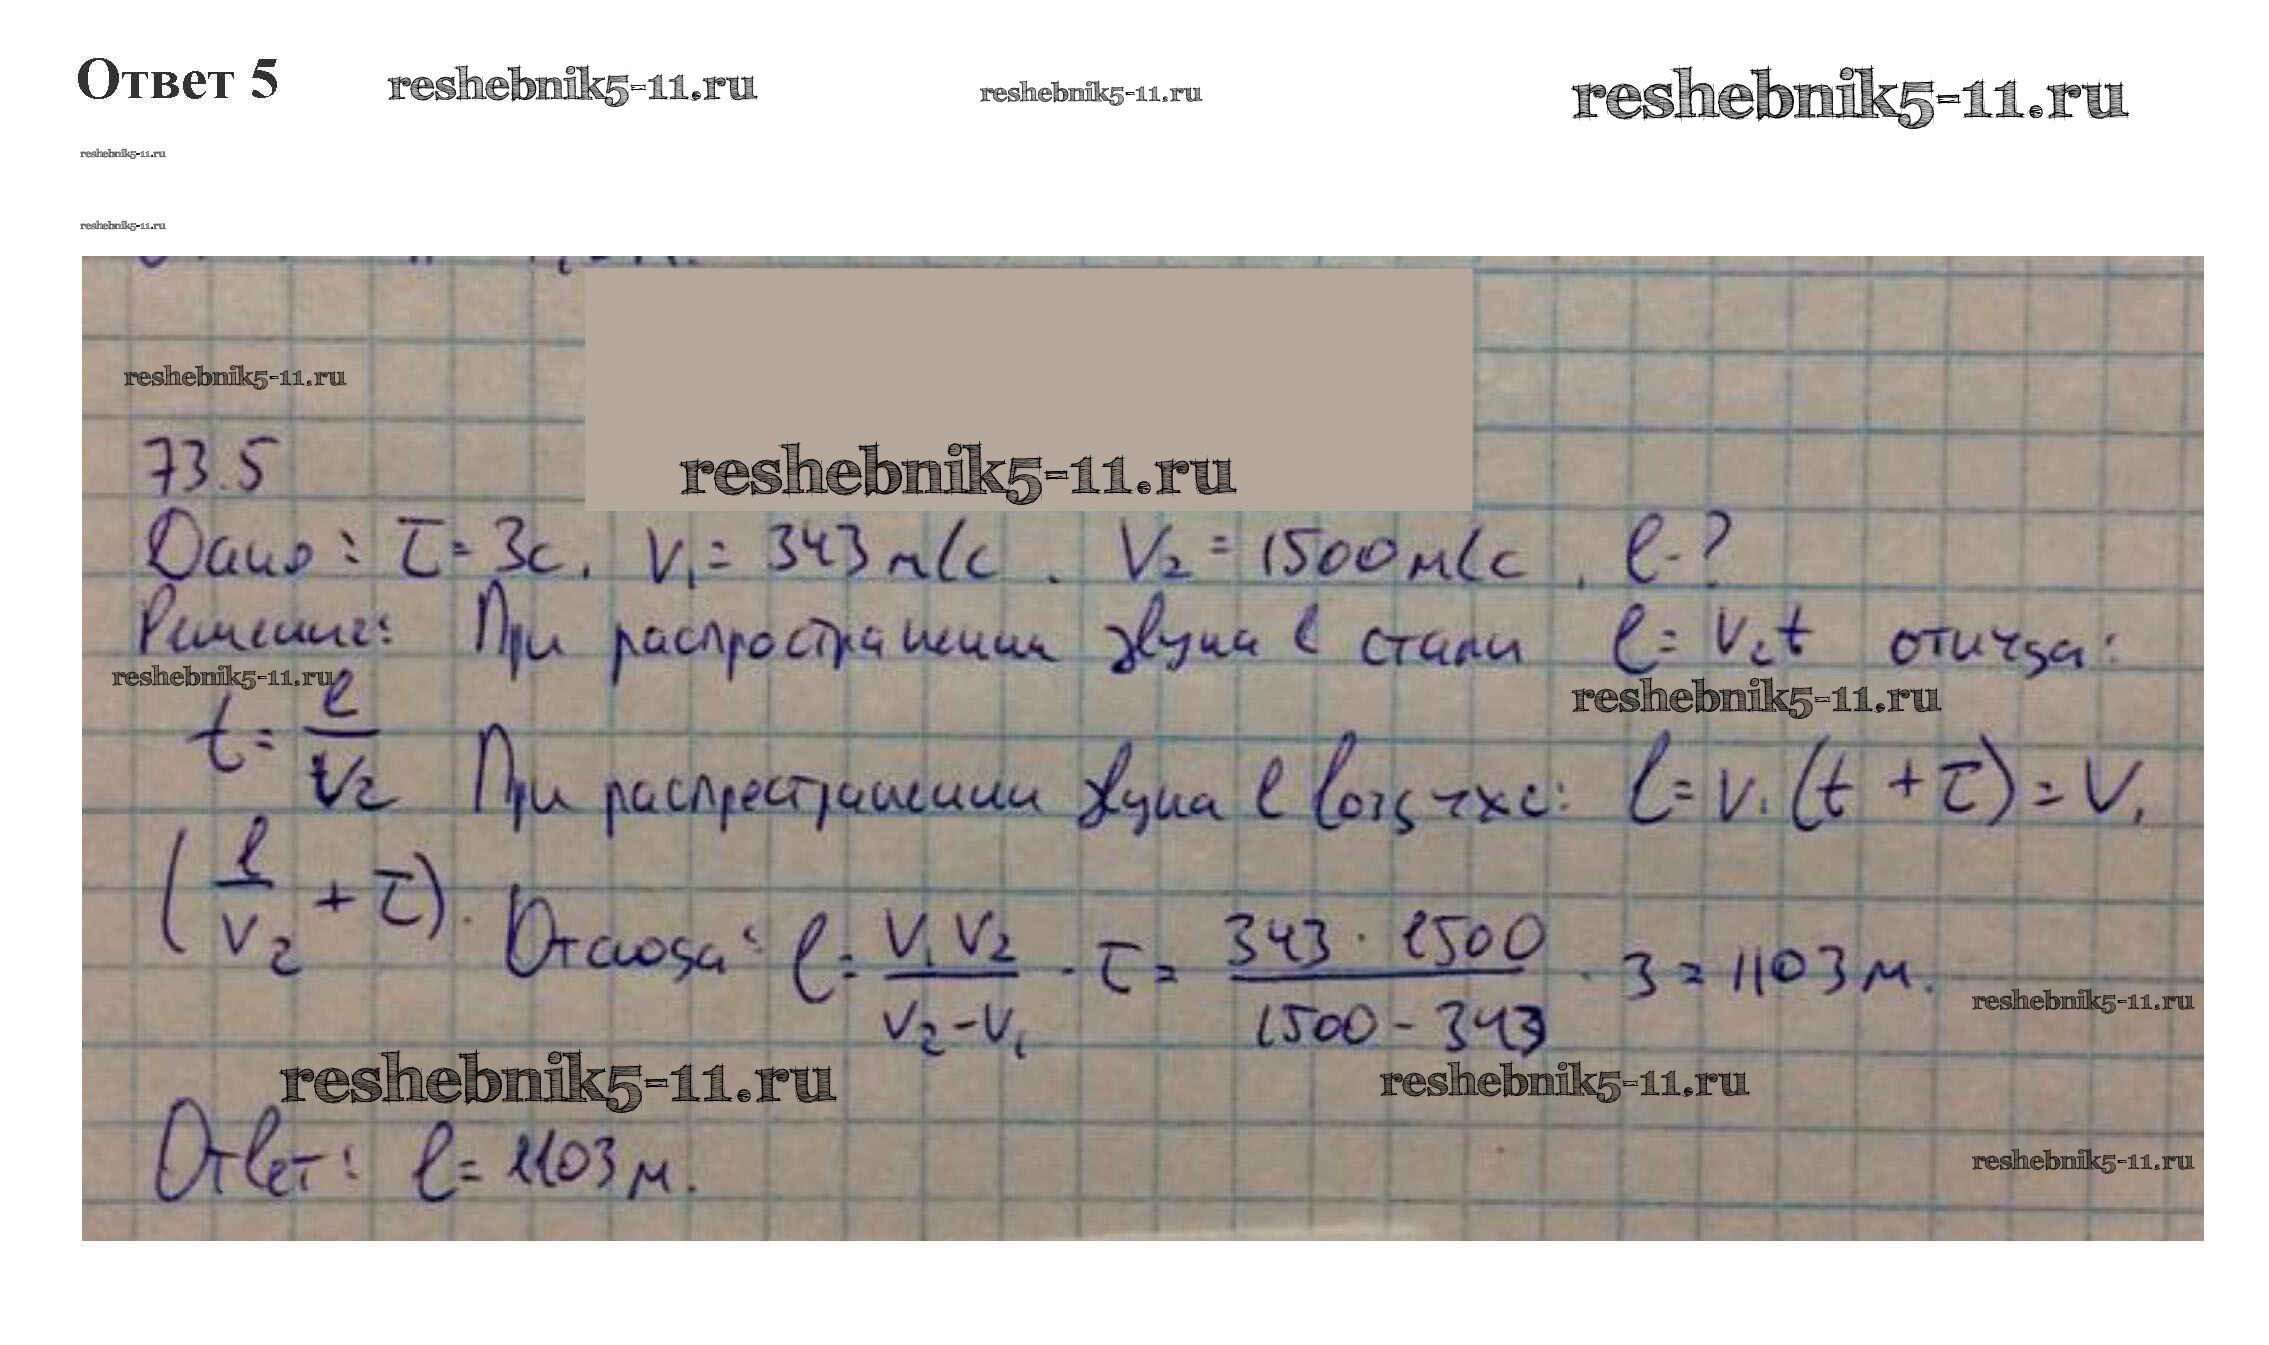 Ответ 5 reshebnik5-11.ru reshebnik5-11.ru reshebnik5-11.ru
reshebnik5-11.ru
reshebnik5-11.ru
reshebnik5-11.ru
reshebnik5-11.ru
73.5
Дано: τ = 3с. V₁ = 343 м/с. V₂ = 1500 м/с, l-?
Решение: При распространении звука в стали l = V₂t отсюда:
reshebnik5-11.ru reshebnik5-11.ru
t = l/V₂ При распрестранении звука в воздухе: l = V₁(t + τ) = V₁
(l/V₂ + τ). Отсюда: l = V₁V₂/V₂-V₁ · τ = 343 · 1500/1500 - 343 · 3 = 1103 м.
reshebnik5-11.ru
reshebnik5-11.ru reshebnik5-11.ru
Ответ: l = 1103 м.
reshebnik5-11.ru